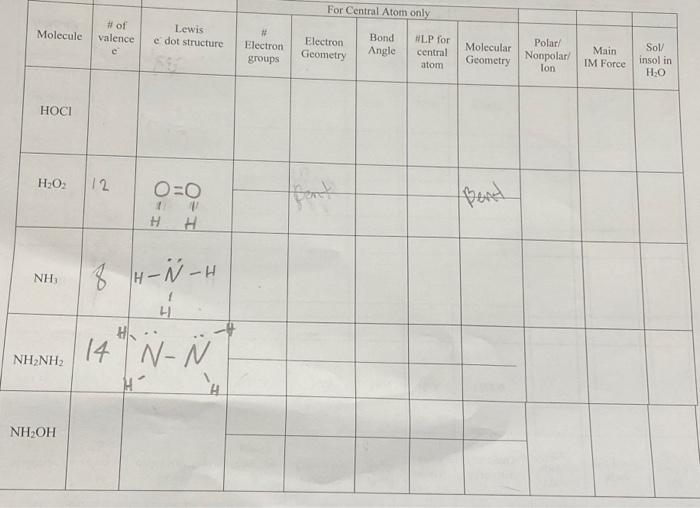 For Central Atom only
Molecule
# of
valence
e-
Lewis
e- dot structure
#
Electron
groups
Electron
Geometry
Bond
Angle
#LP for
central
atom
Molecular
Geometry
Polar/
Nonpolar/
Ion
Main
IM Force
Sol/
insol in
H₂O
HOCl
H₂O₂
12
O=O
H H
Bent
Bent
NH₃
8
H-N̈-H
H
NH₂NH₂
14
H H
N̈-N̈
H H
NH₂OH